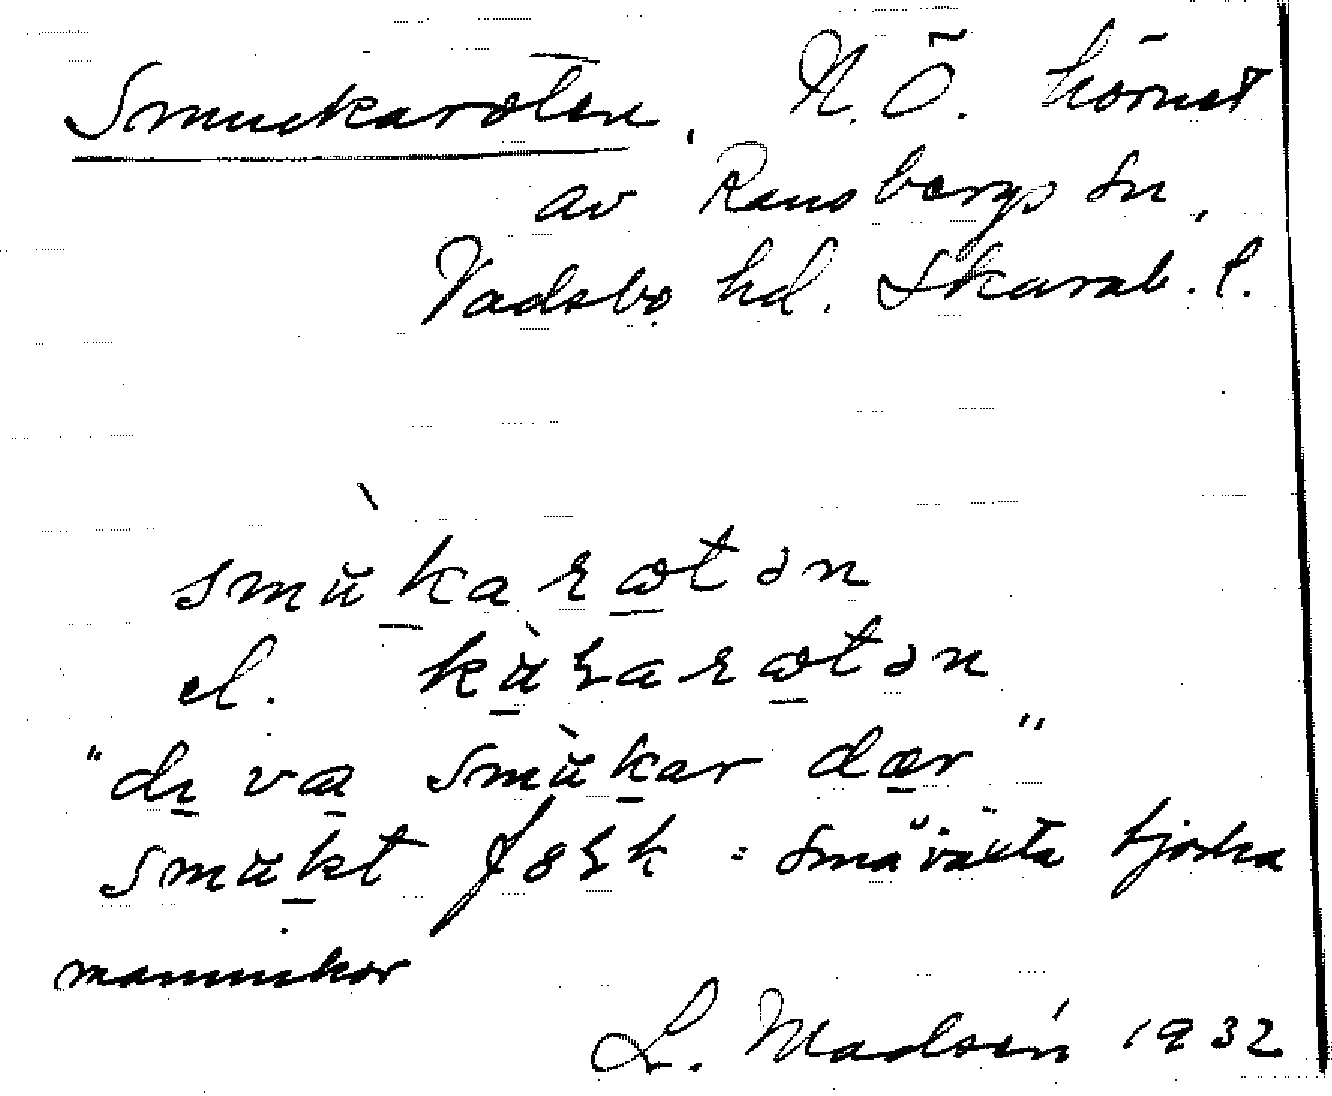 Smuckaröten, N. Ö. hörnet
av Ransbergs sn,
Vadsbo hd. Skarab. l.
smùkarωtən
el. kùꞎarωtən
"dɩ va smùkar dær"
smukt fɔlk = småväxta tjocka
människor
L. Madsén 1932